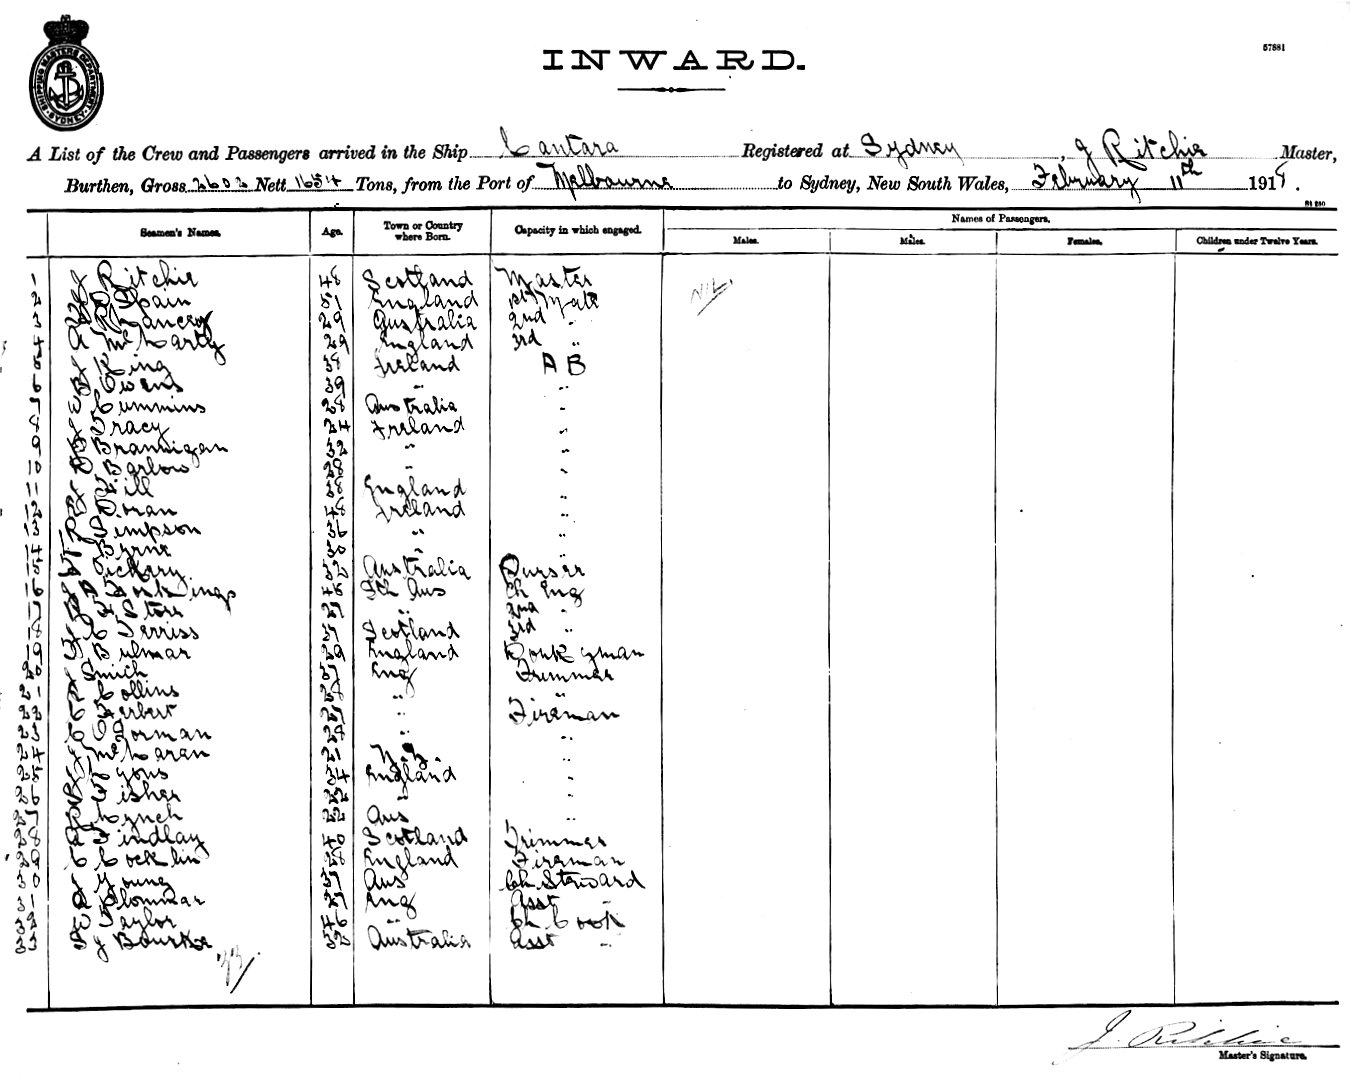 SHIPPING MASTERS DEPARTMENT SYDNEY
57881
INWARD.
A List of the Crew and Passengers arrived in the Ship Cantara Registered at Sydney, J Ritchie Master,
Burthen, Gross 2602 Nett 1654 Tons, from the Port of Melbourne to Sydney, New South Wales, February 11th 1918.
Seamen's Names. Age. Town or Country where Born. Capacity in which engaged. Names of Passengers.
Males. Males. Females. Children under Twelve Years.
1 J Ritchie 48 Scotland Master Nil
2 Spain 51 England 1st Mate
3 29 Australia 2nd "
4 A McCarthy 29 England 3rd "
5 King 38 Ireland AB
6 Owens 39 " "
7 Cummins 28 Australia "
8 Tracy 24 Ireland "
9 Brannigan 32 " "
10 Barlow 28 " "
11 38 England "
12 Doran 48 Ireland "
13 Simpson 36 " "
14 Byrne 30 " "
15 Vickery 32 Australia Purser
16 46 Sth Aus Ch Eng
17 27 " 2nd "
18 Ferriss 37 Scotland 3rd "
19 Bulmar 29 England Donkeyman
20 Smith 37 Eng Trimmer
21 Collins 28 " "
22 Herbert 27 " Fireman
23 Dorman 28 " "
24 McLaren 21 N.Z. "
25 Lyons 34 England "
26 Fisher " "
27 Lynch 22 Aus "
28 Findlay 40 Scotland Trimmer
29 C Cocklin 28 England Fireman
30 Young 37 Aus Ch Steward
31 Plommar 27 Eng Asst "
32 Taylor 46 " Ch Cook
33 J Bourke Australia Asst "
33
J. Ritchie
Master's Signature.